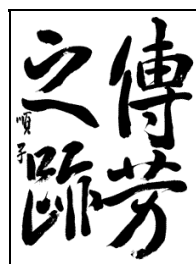 傳芳
之跡
順子